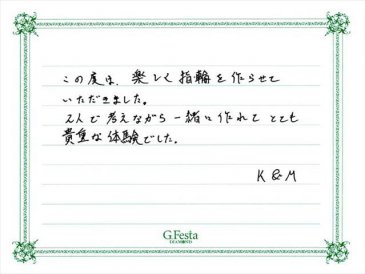 この度は、楽しく指輪を作らせて
いただきました。
2人で考えながら一緒に作れてとても
貴重な体験でした。
K & M
G.Festa
DIAMOND